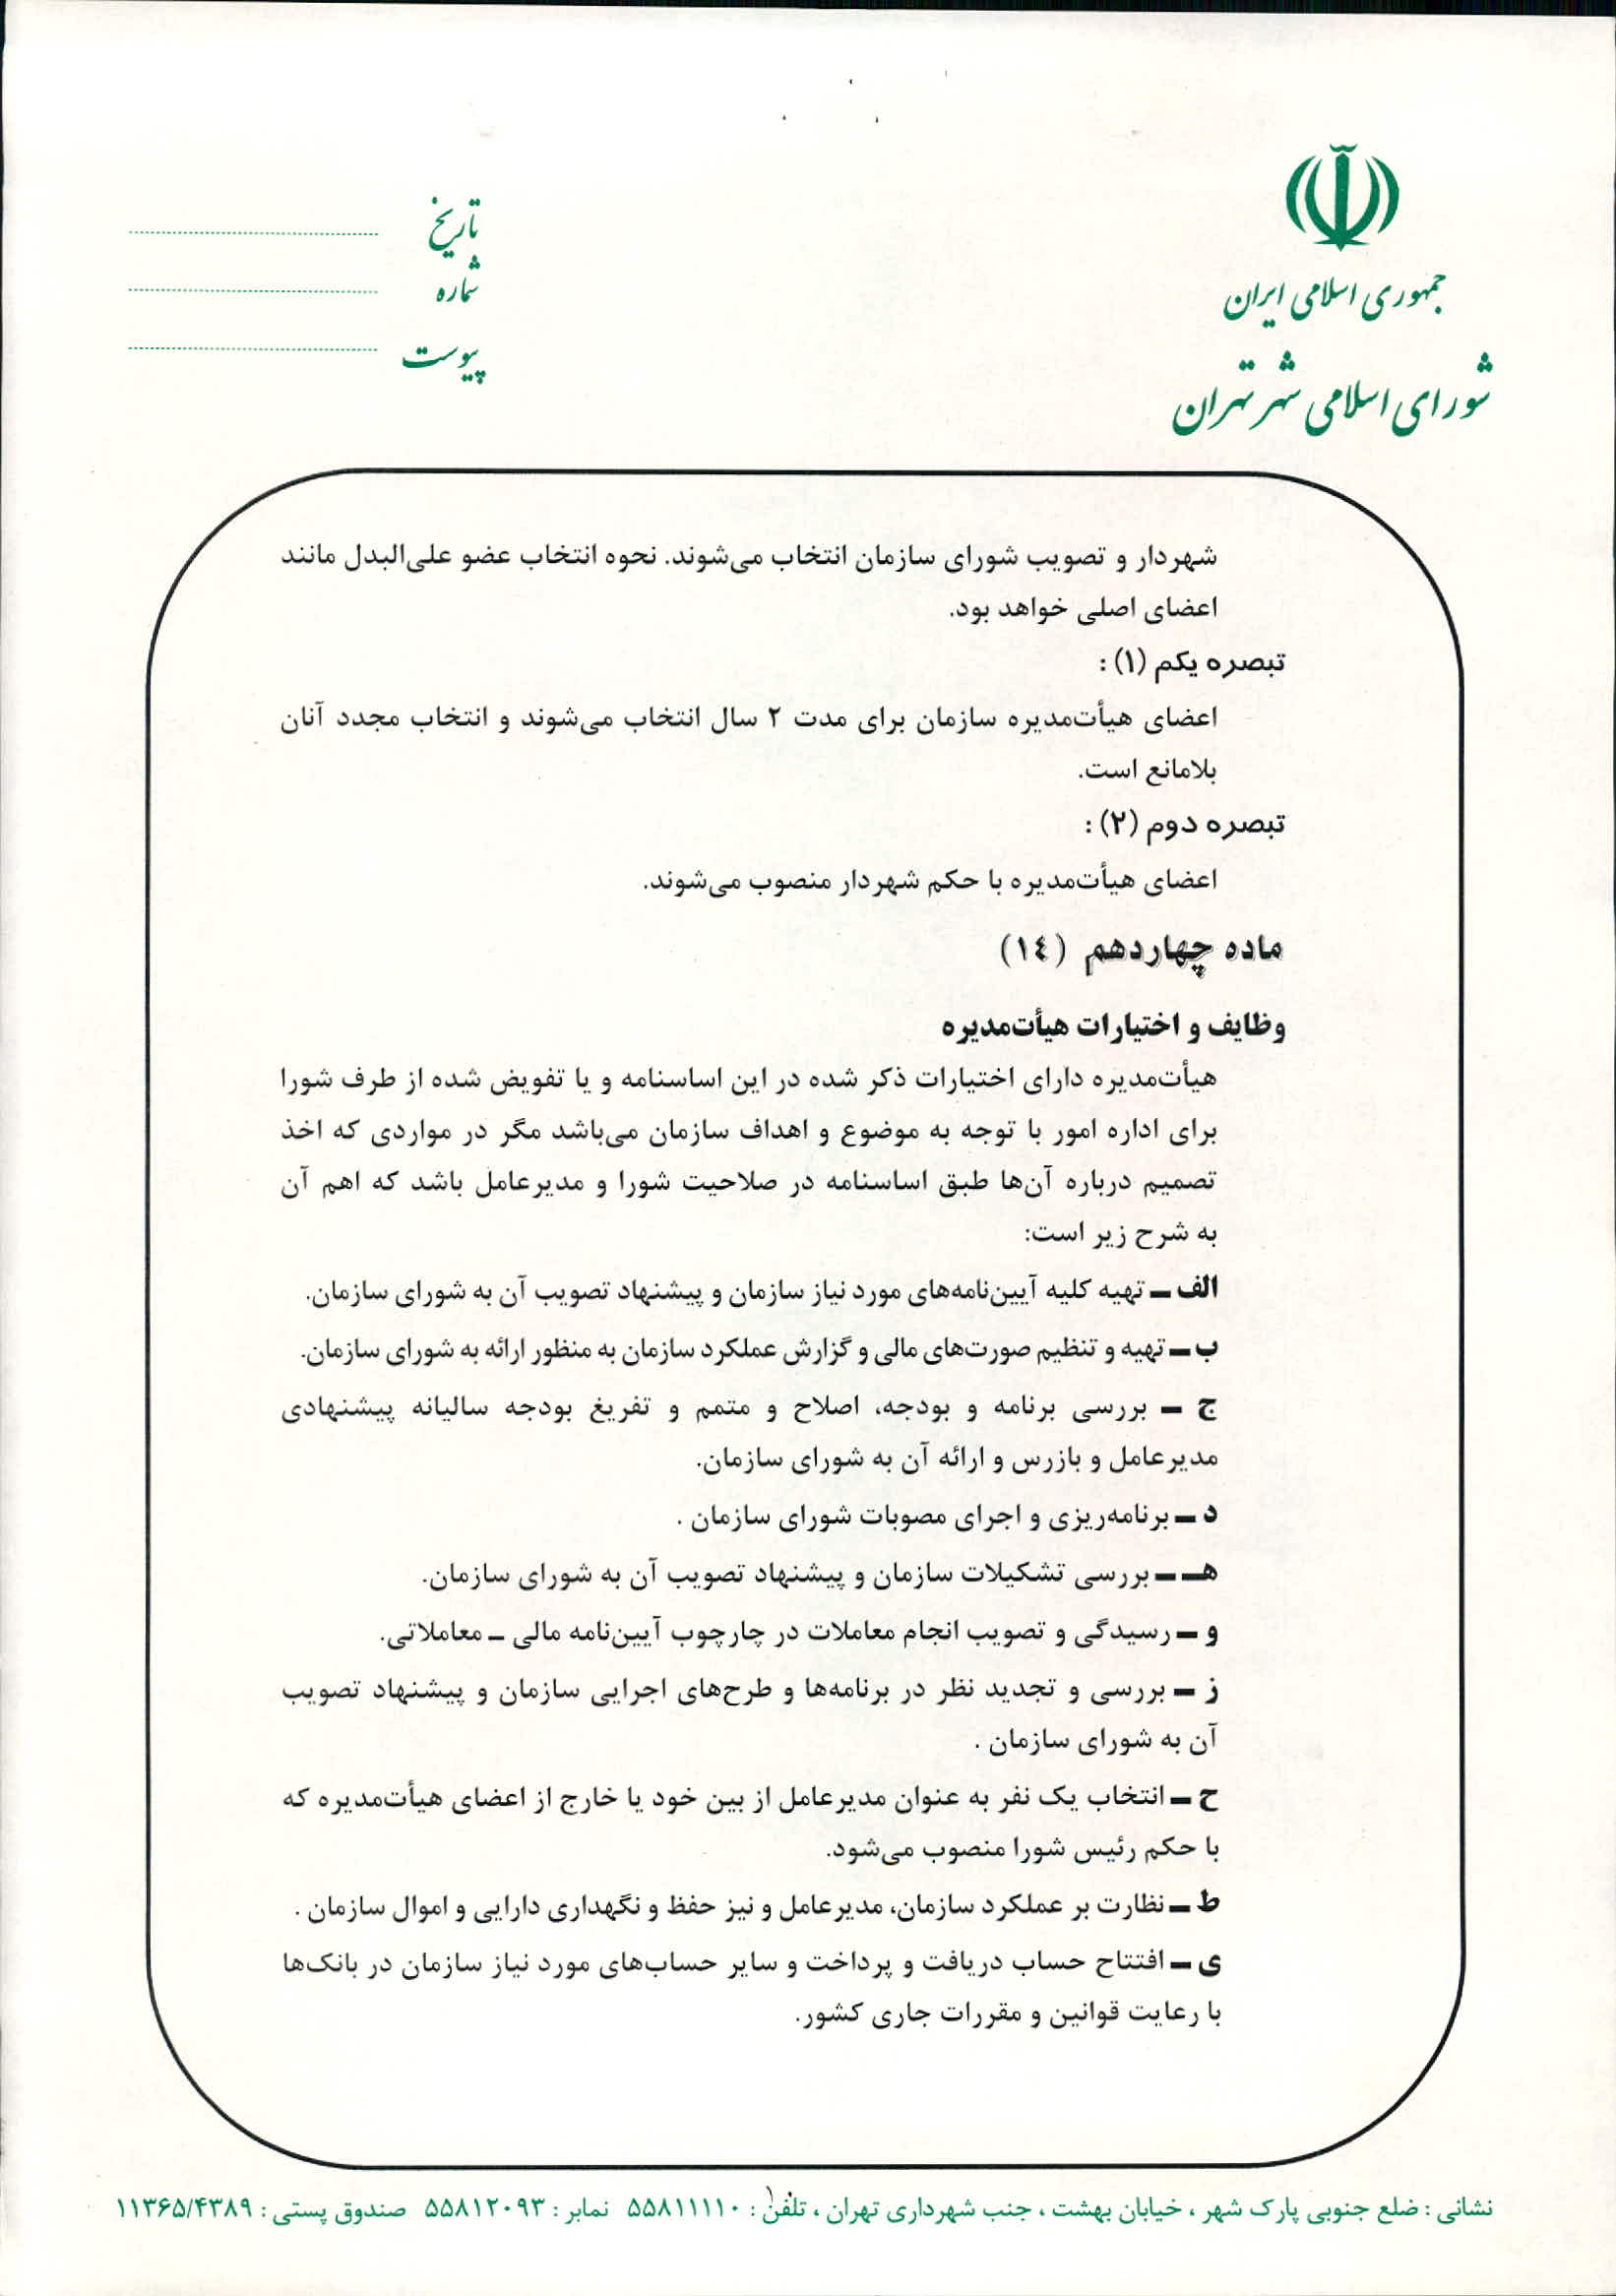 جمهوری اسلامی ایران
شورای اسلامی شهر تهران
تاریخ
شماره
پیوست
شهردار و تصویب شورای سازمان انتخاب می‌شوند. نحوه انتخاب عضو علی‌البدل مانند
اعضای اصلی خواهد بود.
تبصره یکم (۱) :
اعضای هیأت‌مدیره سازمان برای مدت ۲ سال انتخاب می‌شوند و انتخاب مجدد آنان
بلامانع است.
تبصره دوم (۲) :
اعضای هیأت‌مدیره با حکم شهردار منصوب می‌شوند.
ماده چهاردهم (١٤)
وظایف و اختیارات هیأت‌مدیره
هیأت‌مدیره دارای اختیارات ذکر شده در این اساسنامه و یا تفویض شده از طرف شورا
برای اداره امور با توجه به موضوع و اهداف سازمان می‌باشد مگر در مواردی که اخذ
تصمیم درباره آن‌ها طبق اساسنامه در صلاحیت شورا و مدیرعامل باشد که اهم آن
به شرح زیر است:
الف ـ تهیه کلیه آیین‌نامه‌های مورد نیاز سازمان و پیشنهاد تصویب آن به شورای سازمان.
ب ـ تهیه و تنظیم صورت‌های مالی و گزارش عملکرد سازمان به منظور ارائه به شورای سازمان.
ج ـ بررسی برنامه و بودجه، اصلاح و متمم و تفریغ بودجه سالیانه پیشنهادی
مدیرعامل و بازرس و ارائه آن به شورای سازمان.
د ـ برنامه‌ریزی و اجرای مصوبات شورای سازمان .
هـ ـ بررسی تشکیلات سازمان و پیشنهاد تصویب آن به شورای سازمان.
و ـ رسیدگی و تصویب انجام معاملات در چارچوب آیین‌نامه مالی ـ معاملاتی.
ز ـ بررسی و تجدید نظر در برنامه‌ها و طرح‌های اجرایی سازمان و پیشنهاد تصویب
آن به شورای سازمان .
ح ـ انتخاب یک نفر به عنوان مدیرعامل از بین خود یا خارج از اعضای هیأت‌مدیره که
با حکم رئیس شورا منصوب می‌شود.
ط ـ نظارت بر عملکرد سازمان، مدیرعامل و نیز حفظ و نگهداری دارایی و اموال سازمان .
ی ـ افتتاح حساب دریافت و پرداخت و سایر حساب‌های مورد نیاز سازمان در بانک‌ها
با رعایت قوانین و مقررات جاری کشور.
۱۰
نشانی : ضلع جنوبی پارک شهر ، خیابان بهشت ، جنب شهرداری تهران ، تلفن : ۵۵۸۱۱۱۱۰ نمابر : ۵۵۸۱۲۰۹۳ صندوق پستی : ۱۱۳۶۵/۴۳۸۹